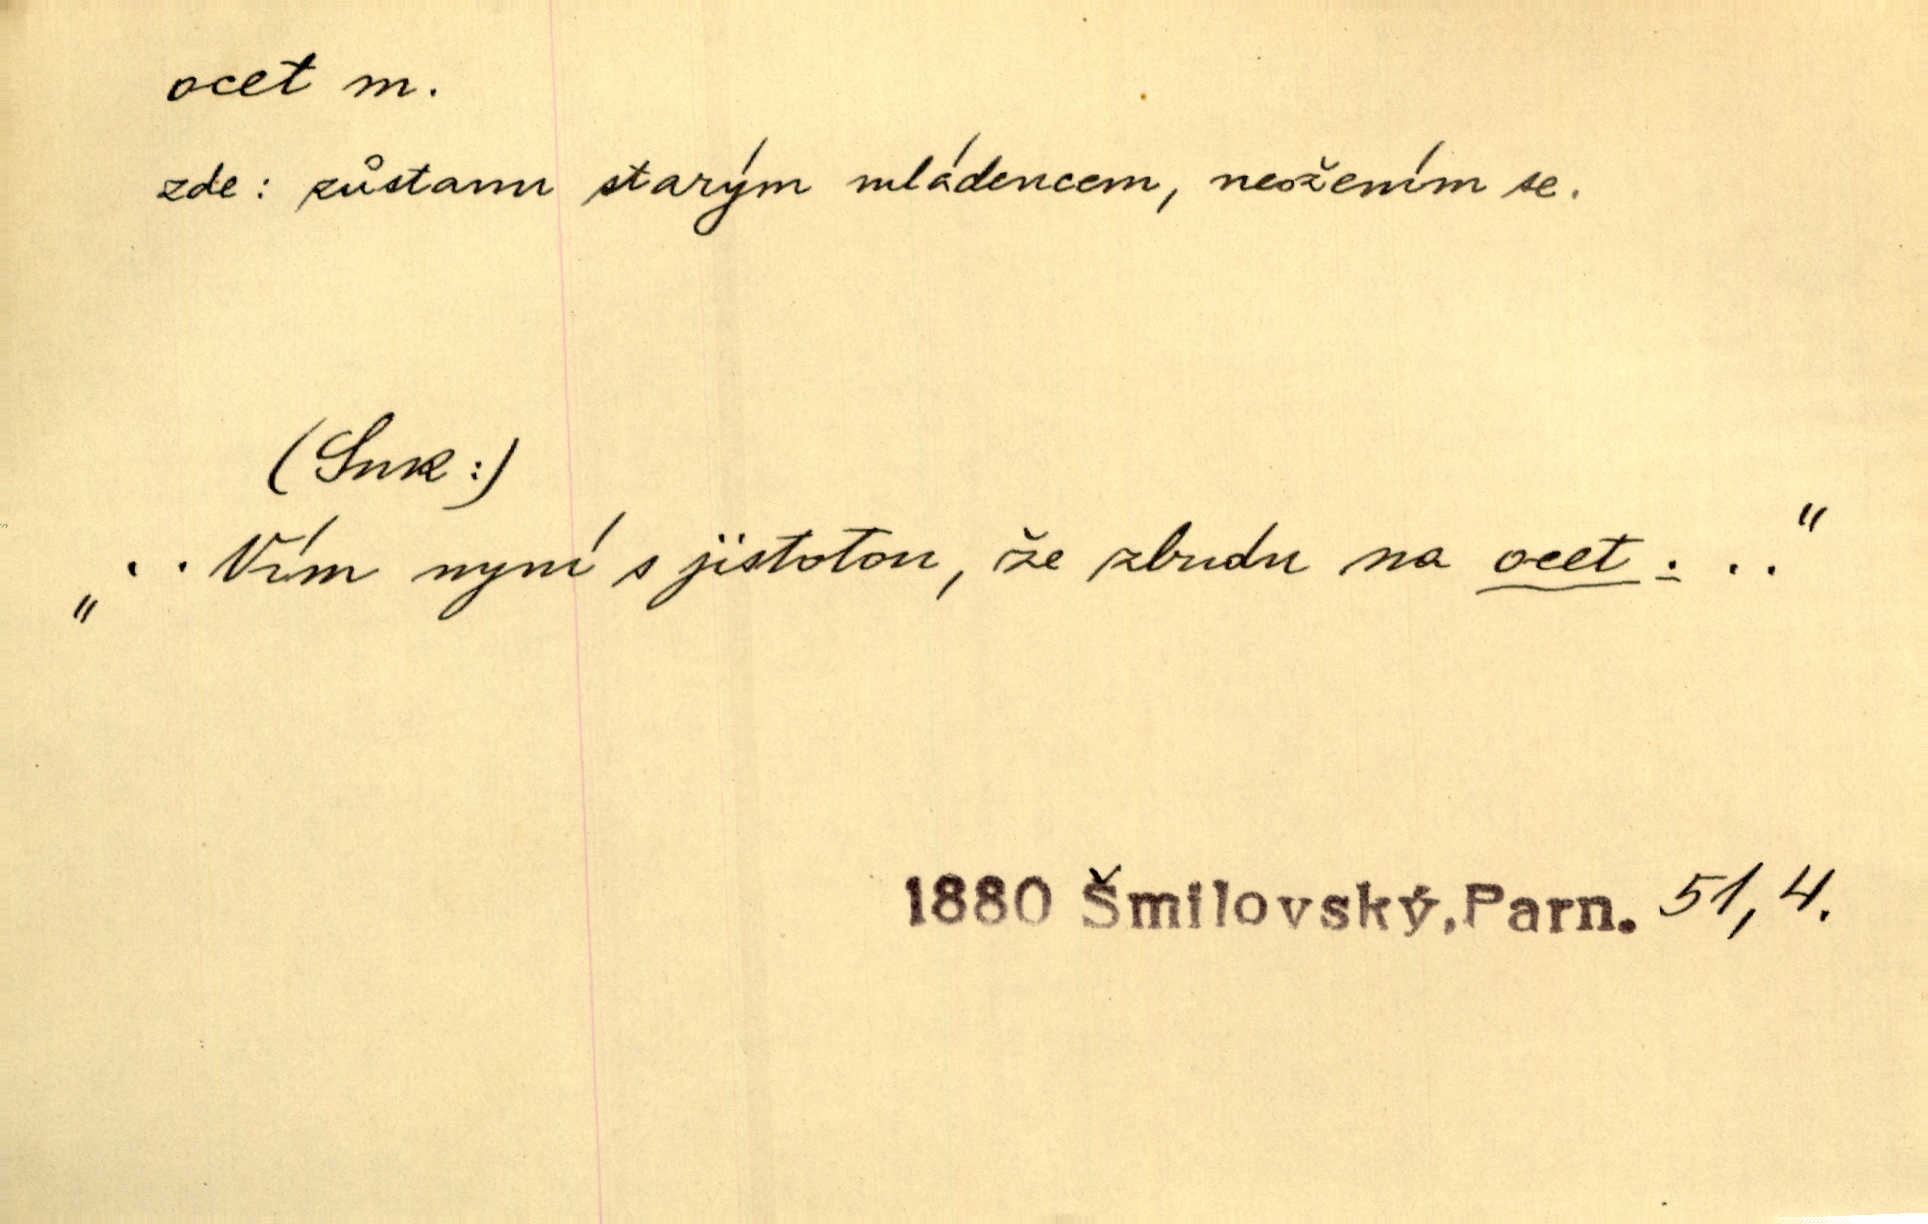 ocet m.
zde: zůstanu starým mládencem, neožením se.
(Suk:)
„ . . Vím nyní s jistotou, že zbudu na ocet . . .“
1880 Šmilovský, Parn. 51, 4.